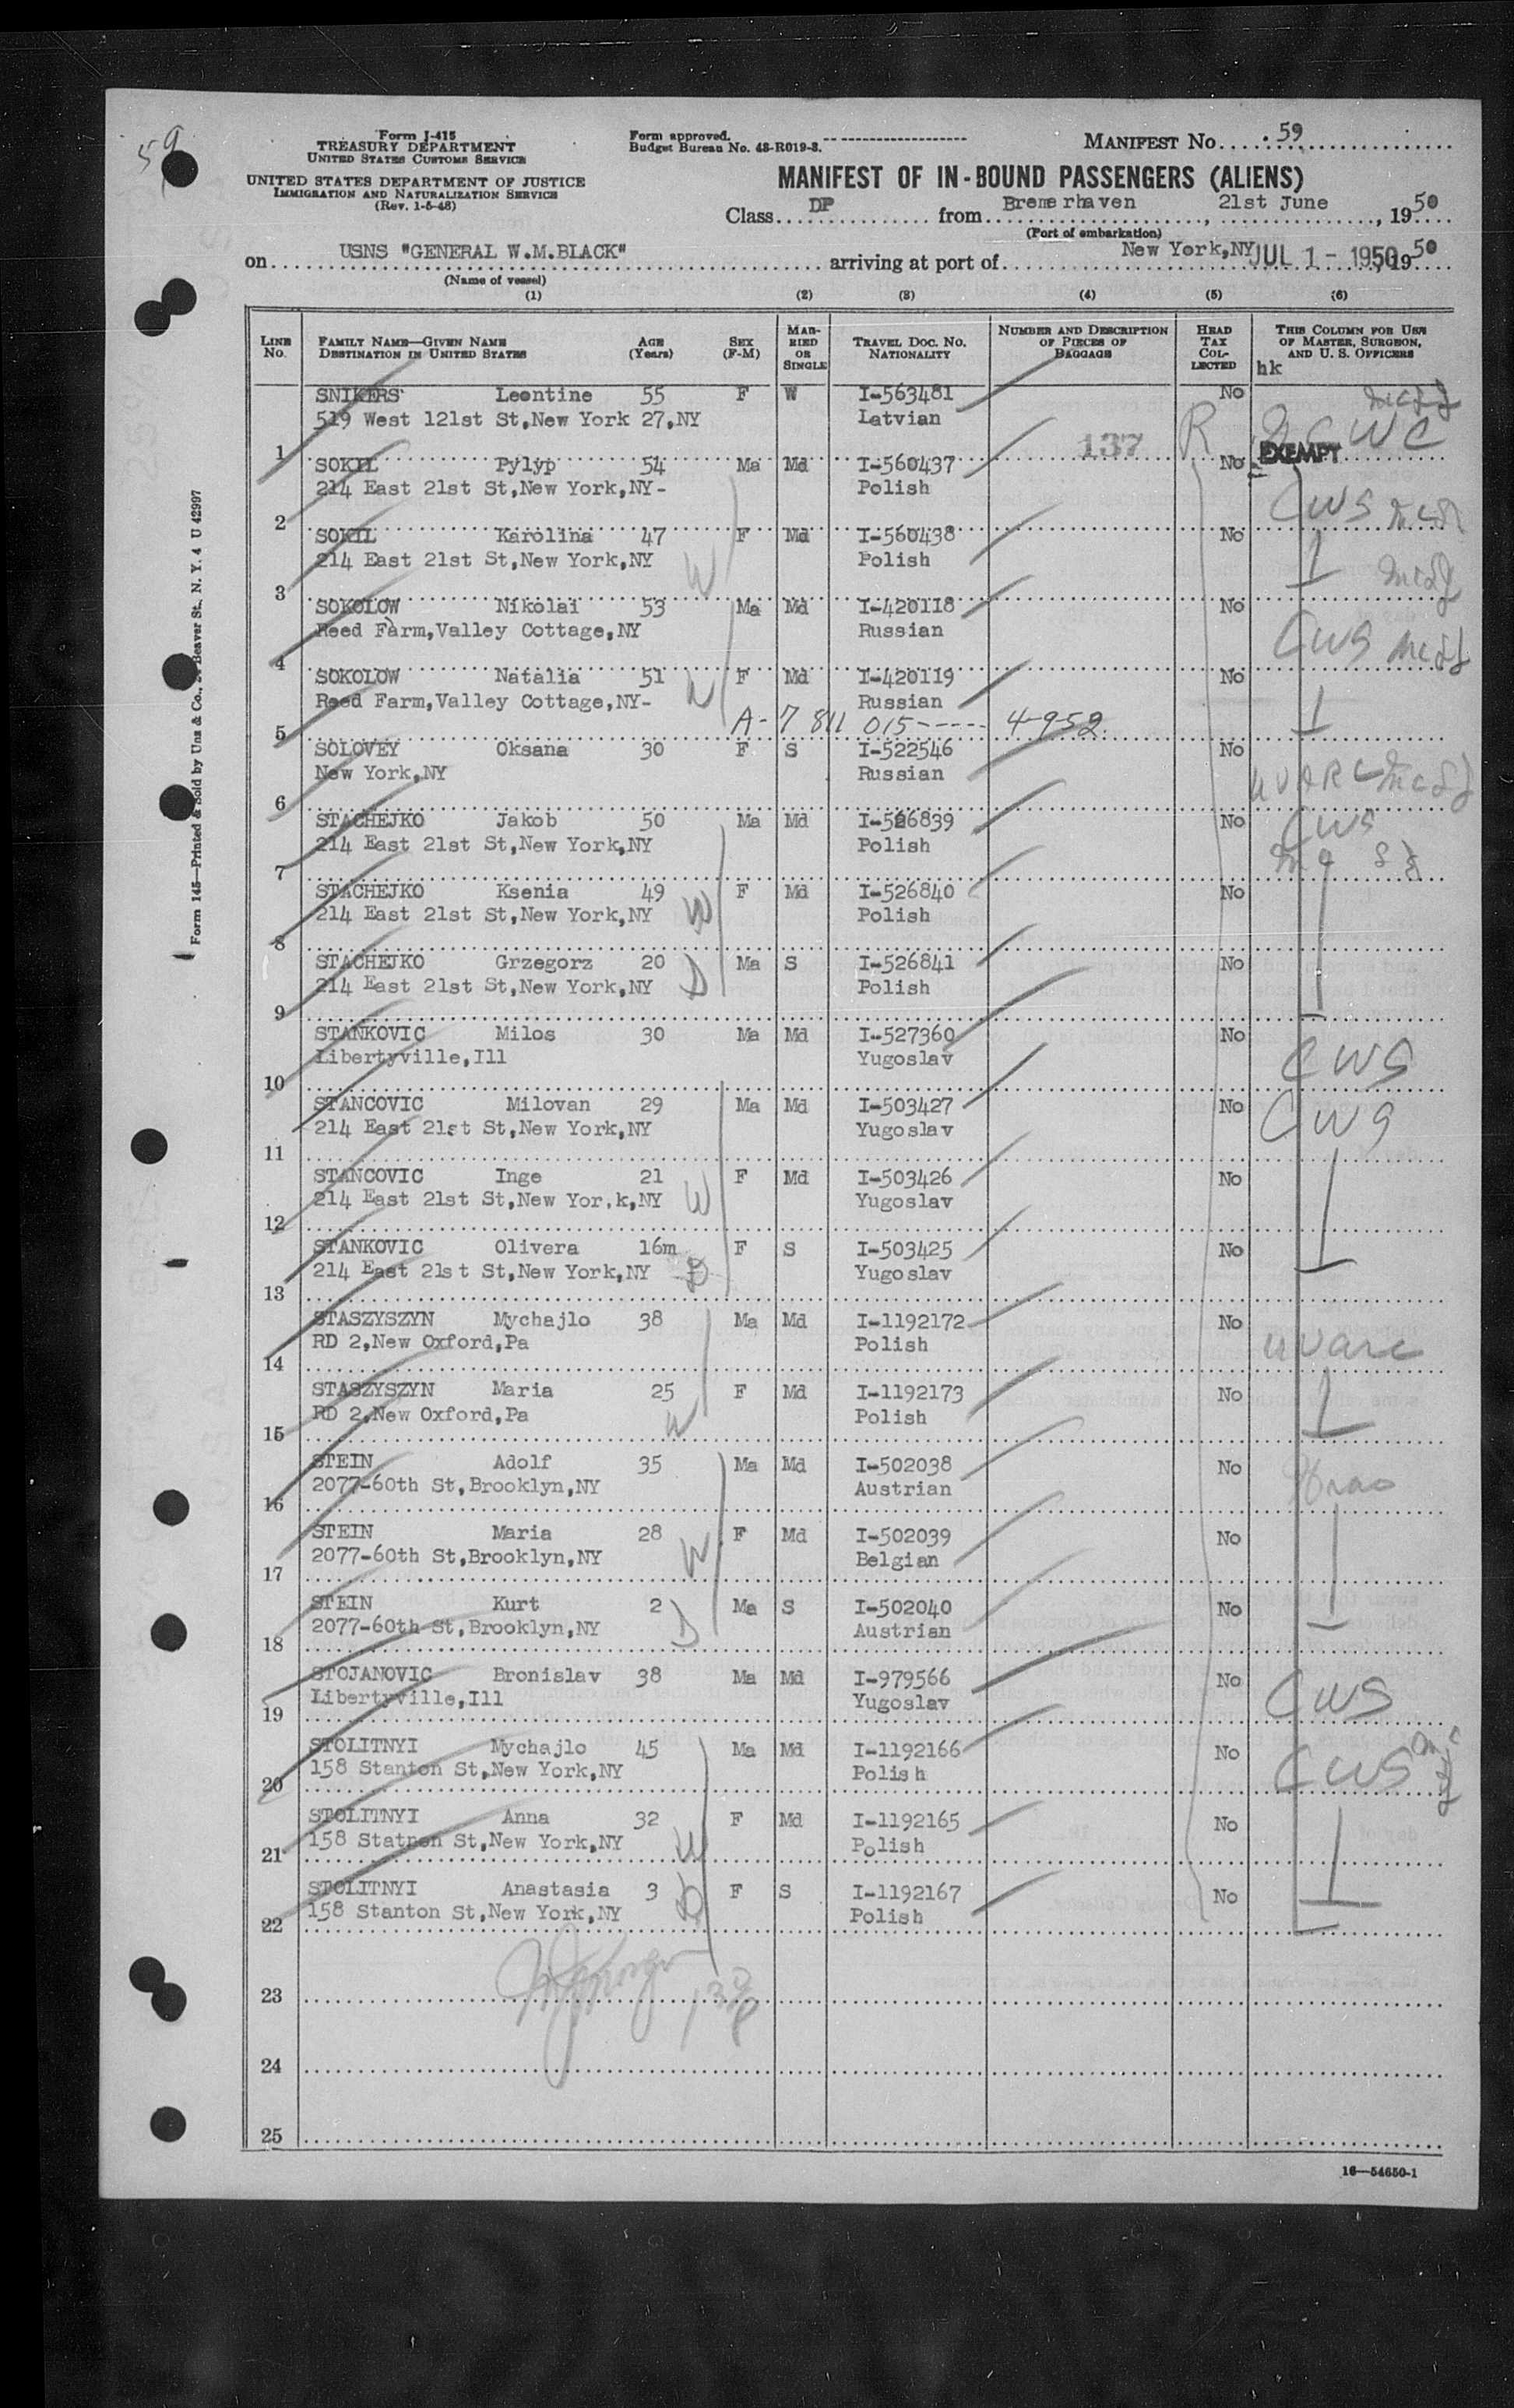 59
Form I-415
TREASURY DEPARTMENT
UNITED STATES CUSTOMS SERVICE
UNITED STATES DEPARTMENT OF JUSTICE
IMMIGRATION AND NATURALIZATION SERVICE
(Rev. 1-5-48)
Form approved.
Budget Bureau No. 43-R019-3.
MANIFEST No. 59
MANIFEST OF IN-BOUND PASSENGERS (ALIENS)
Class DP from Bremerhaven, 21st June, 1950
(Port of embarkation)
on USNS "GENERAL W.M.BLACK" arriving at port of New York,NY JUL 1 - 1950 1950
(Name of vessel)
(1) (2) (3) (4) (5) (6)
LINE No. FAMILY NAME—GIVEN NAME DESTINATION IN UNITED STATES AGE (Years) SEX (F-M) MARRIED OR SINGLE TRAVEL DOC. NO. NATIONALITY NUMBER AND DESCRIPTION OF PIECES OF BAGGAGE HEAD TAX COLLECTED THIS COLUMN FOR USE OF MASTER, SURGEON, AND U. S. OFFICERS
hk
SNIKERS Leontine 55 F W I-563481 No
519 West 121st St,New York 27,NY Latvian
1 137 R EXEMPT
SOKIL Pylyp 54 Ma Md I-560437 No
214 East 21st St,New York,NY- Polish
2 CWS
SOKIL Karolina 47 F Md I-560438 No
214 East 21st St,New York,NY W Polish
3
SOKOLOW Nikolai 53 Ma Md I-420118 No
Reed Farm,Valley Cottage,NY Russian CWS
4
SOKOLOW Natalia 51 W F Md I-420119 No
Reed Farm,Valley Cottage,NY- Russian
5 A-7 811 015----- 4-9-52
SOLOVEY Oksana 30 F S I-522546 No
New York,NY Russian
6
STACHEJKO Jakob 50 Ma Md I-526839 No CWS
214 East 21st St,New York,NY Polish
7
STACHEJKO Ksenia 49 F Md I-526840 No
214 East 21st St,New York,NY W Polish
8
STACHEJKO Grzegorz 20 Ma S I-526841 No
214 East 21st St,New York,NY D Polish
9
STANKOVIC Milos 30 Ma Md I-527360 No
Libertyville,Ill Yugoslav CWS
10
STANCOVIC Milovan 29 Ma Md I-503427 No CWS
214 East 21st St,New York,NY Yugoslav
11
STANCOVIC Inge 21 F Md I-503426 No
214 East 21st St,New Yor.k,NY W Yugoslav
12
STANKOVIC Olivera 16m F S I-503425 No
214 East 21st St,New York,NY D Yugoslav
13
STASZYSZYN Mychajlo 38 Ma Md I-1192172 No
RD 2,New Oxford,Pa Polish uvarc
14
STASZYSZYN Maria 25 F Md I-1192173 No
RD 2,New Oxford,Pa W Polish
15
STEIN Adolf 35 Ma Md I-502038 No
2077-60th St,Brooklyn,NY Austrian
16
STEIN Maria 28 F Md I-502039 No
2077-60th St,Brooklyn,NY W Belgian
17
STEIN Kurt 2 Ma S I-502040 No
2077-60th St,Brooklyn,NY D Austrian
18
STOJANOVIC Bronislav 38 Ma Md I-979566 No
Libertyville,Ill Yugoslav CWS
19
STOLITNYI Mychajlo 45 Ma Md I-1192166 No
158 Stanton St,New York,NY Polish CWS
20
STOLITNYI Anna 32 F Md I-1192165 No
158 Statnon St,New York,NY W Polish
21
STOLITNYI Anastasia 3 D F S I-1192167 No
158 Stanton St,New York,NY Polish
22
23
24
25
16—54650-1